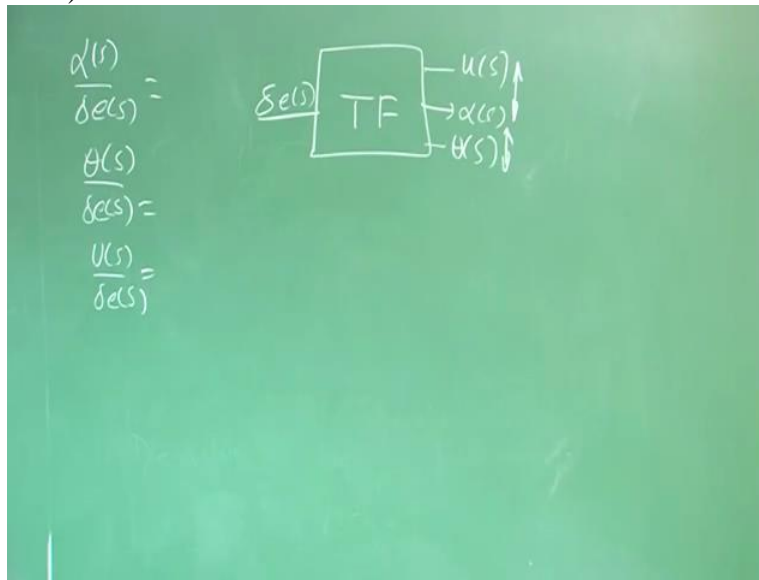 α(s)
δe(s) =
θ(s)
δe(s) =
U(s)
δe(s) =
δe(s)
TF
u(s)
α(s)
θ(s)